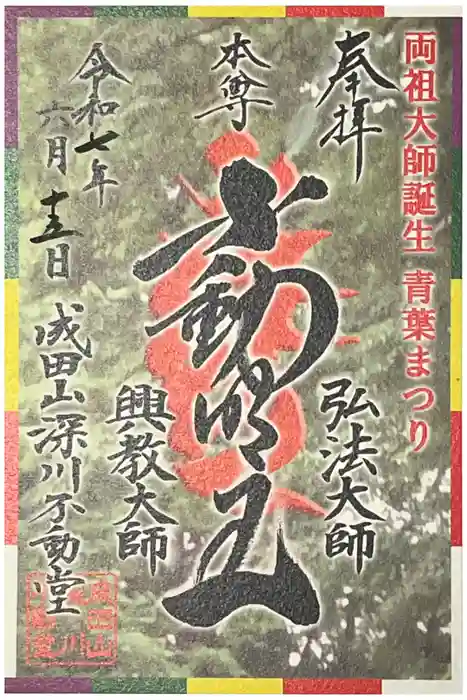 両祖大師誕生 青葉まつり
奉拝
弘法大師
本尊
不動明王
興教大師
令和七年
六月十五日
成田山深川不動堂